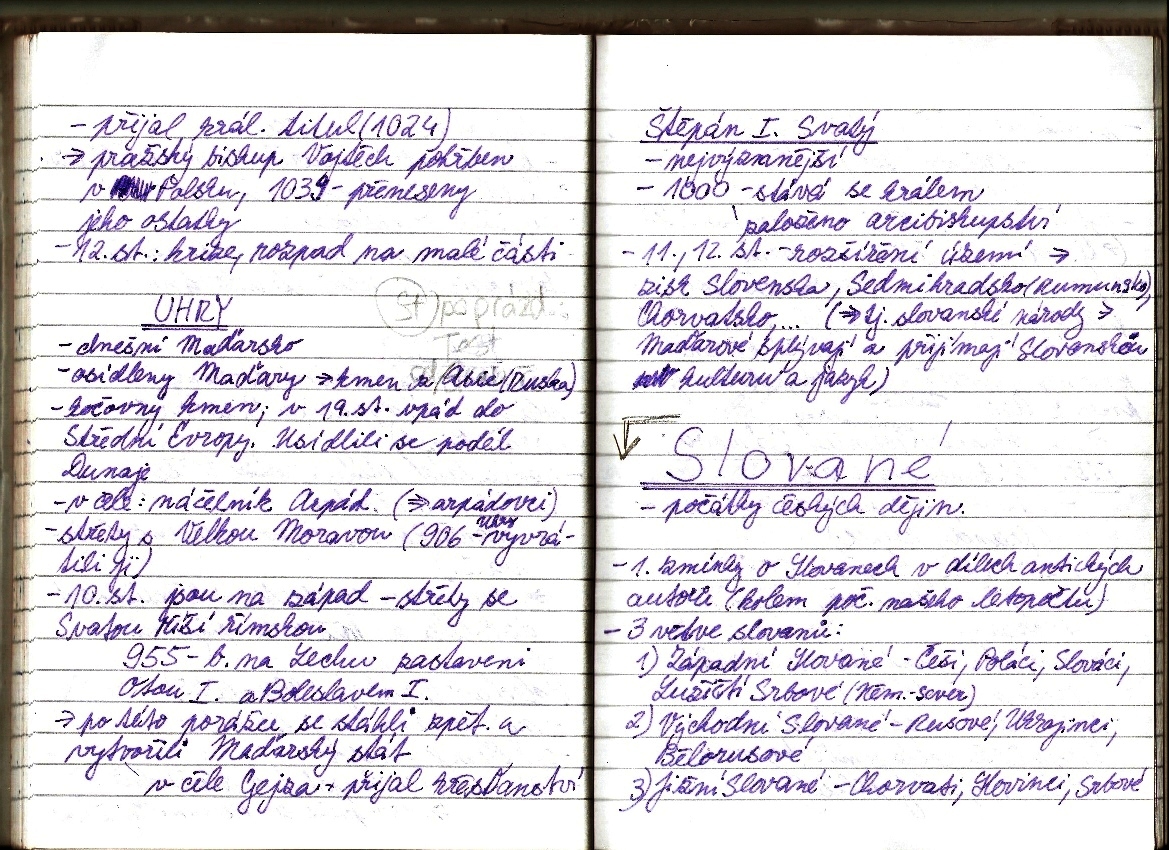 - přijal král. titul (1024)
→ pražský biskup Vojtěch pohřben
v Polsku, 1039 - přeneseny
jeho ostatky
- 12. st.: krize, rozpad na malé části
UHRY
St po prázd.
Test
- dnešní Maďarsko
- osídleny Maďary → kmen z Asie (Ruska)
- kočovný kmen; v 19. st. vpád do
Střední Evropy. Usídlili se podél
Dunaje
- v čele: náčelník Arpád. (⇒ arpádovci)
- střety s Velkou Moravou (906 - Uhry vyvrá-
tili ji)
- 10. st. jsou na západ - střety se
Svatou říší římskou
955 - b. na Lechu zastaveni
Otou I. a Boleslavem I.
→ po této porážce se stáhli zpět a
vytvořili Maďarský stát
v čele Gejza → přijal křesťanství
Štěpán I. Svatý
- nejvýznamnější
- 1000 - stává se králem
založeno arcibiskupství
- 11., 12. st. - rozšíření území →
zisk Slovenska, Sedmihradsko (Rumunsko),
Chorvatsko,... (⇒ tj. slovanské národy →
Maďarové splývají a přijímají Slovanskou
kulturu a jazyk)
Slované
- počátky českých dějin.
- 1. zmínky o Slovanech v dílech antických
autorů (kolem poč. našeho letopočtu)
- 3 větve slovanů:
1) Západní Slované - Češi, Poláci, Slováci,
Lužičtí Srbové (Něm. - sever)
2) Východní Slované - Rusové, Ukrajinci,
Bělorusové
3) Jižní Slované - Chorvati, Slovinci, Srbové